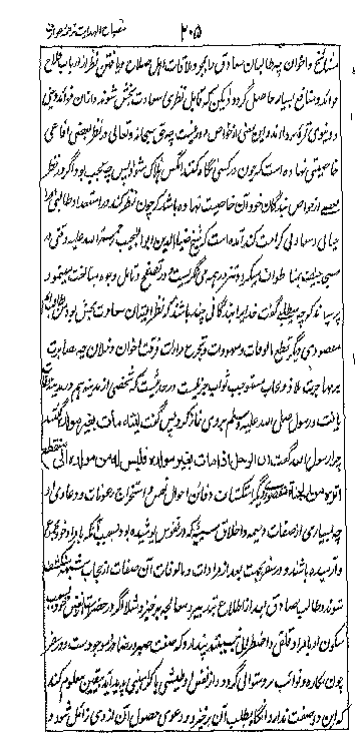 مصباح الهدایت ترجمهٔ عوارف
۲۰۵
مشایخ و اخوان چه طالبان صادق را بمجرد ملاقات اهل صلاح و یافتن نظر از ارباب فلاح
فوائد و منافع بسیار حاصل گردد لیکن که قابل نظری سعادت بخش شوند و ازان فوائد دینی
و دنیوی ثمره بردارند و این معنی از خواص دور نیست چه حق سبحانه و تعالی در نظر بعضی افاعی
خاصیتی نهاده است که چون در کسی نگاه کنند آنکس هلاک شود پس چه عجب بود اگر در نظر
بعضی از خواص بندگان خود آن خاصیت نهاده باشد که چون نظر کنند در استعداد طالبی او را
حیاتی و سعادتی کرامت کند آمده است که شیخ ضیاءالدین ابوالنجیب رحمة الله علیه وقتی در
مسجد خیف بمنا طواف میکرد و در هر روی می نگریست و در تصفح و تامل وجوه مبالغت مینمود
پرسیدند که چه میطلبی گفت خدایرا بندگانی چند باشند که نظر ایشان سعادت بخش بود من طالب
مقصودی دیگر قطع مالوفات و معهودات و تجرع مرارت فرقت اخوان و خلان چه مصابرت
بر مهاجرت بلاد و احباب مستوجب ثواب جزیلست در حدیث است که شخصی از مدینه هم در مدینه وفات
یافت و رسول صلی الله علیه وسلم بر وی نماز کرد پس گفت لیته مات بغیر مولده گفتند
چرا رسول الله گفت ان الرجل اذا مات بغیر مولده قیس له من مولده الی منقطع
اثره من الجنة مقصودی دیگر استکشاف دفائن احوال نفس و استخراج رعونات و دعاوی او
چه بسیاری از صفات ذمیمه و اخلاق سیئه که در نفوس پوشیده بود بسبب آنکه با مراد خود مجموع
و آرمیده باشند و در سفر بجهت بعد از مرادات و مالوفات آن صفات از حجاب شبهت منکشف
شوند و طالب صادق بعد از اطلاع بتدبیر و معالجه برخیزد مثلا اگر در حضر بنا بر نفس بموجب
سکون او با مراد قلق و اضطرابی نبیند پندارد که صفت صبر و رضا در و موجودست و در سفر
چون مکاره و نوائب برو متوالی گردد و از نفس او طیشی یا کراهیتی پدید آید بیقین معلوم کند
که این دو صفت ندارد آنگاه بطلب آن برخیزد و دعوی حصول آن ازوی زائل شود و